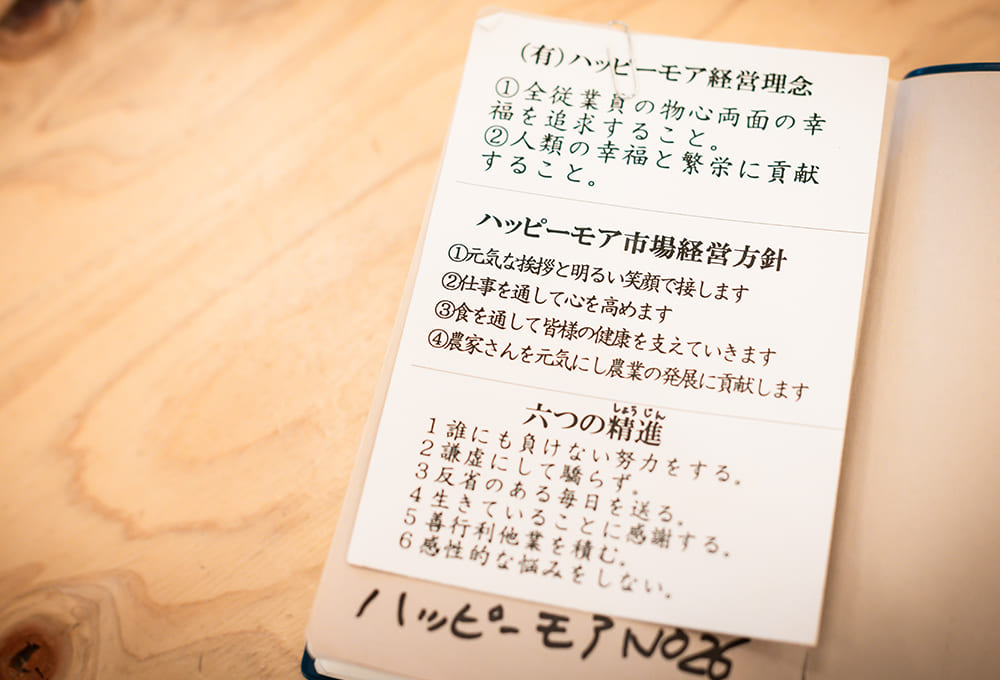 (有)ハッピーモア経営理念
①全従業員の物心両面の幸
福を追求すること。
②人類の幸福と繁栄に貢献
すること。
ハッピーモア市場経営方針
①元気な挨拶と明るい笑顔で接します
②仕事を通して心を高めます
③食を通して皆様の健康を支えていきます
④農家さんを元気にし農業の発展に貢献します
しょうじん
六つの精進
1 誰にも負けない努力をする。
2 謙虚にして驕らず。
3 反省のある毎日を送る。
4 生きていることに感謝する。
5 善行利他業を積む。
6 感性的な悩みをしない。
ハッピーモア NO26